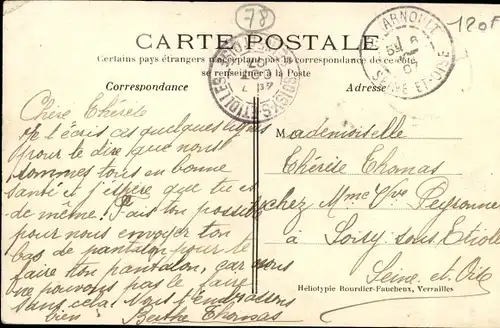 78
120F
CARTE POSTALE
Certains pays étrangers n'acceptant pas la correspondance de ce côté,
se renseigner à la Poste
Correspondance
Adresse
ARNOULT
SEINE-ET-OISE
ETIOLLES
Chère Thérèse
Je t'écris ces quelques lignes
pour te dire que nous
sommes tous en bonne
santé et j'espère que tu es
de même. Fais ton possible
pour nous envoyer ton
bas de pantalon pour te
faire ton pantalon, car nous
ne pouvons pas le faire
sans cela. Nous t'embrassons
bien Berthe Thomas
Mademoiselle
Thérèse Thomas
chez Mme Vve Peyronnet
à Soisy sous Etiolles
Seine et Oise
Héliotypie Bourdier-Faucheux, Versailles